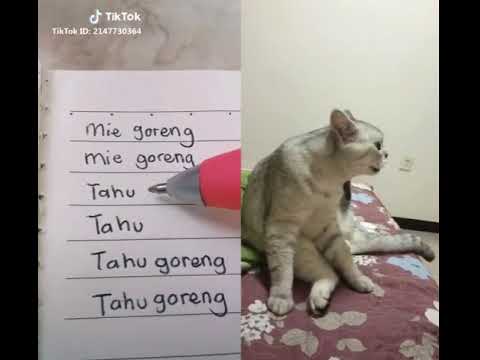 TikTok
TikTok ID: 2147730364
Mie goreng
mie goreng
Tahu
Tahu
Tahu goreng
Tahu goreng